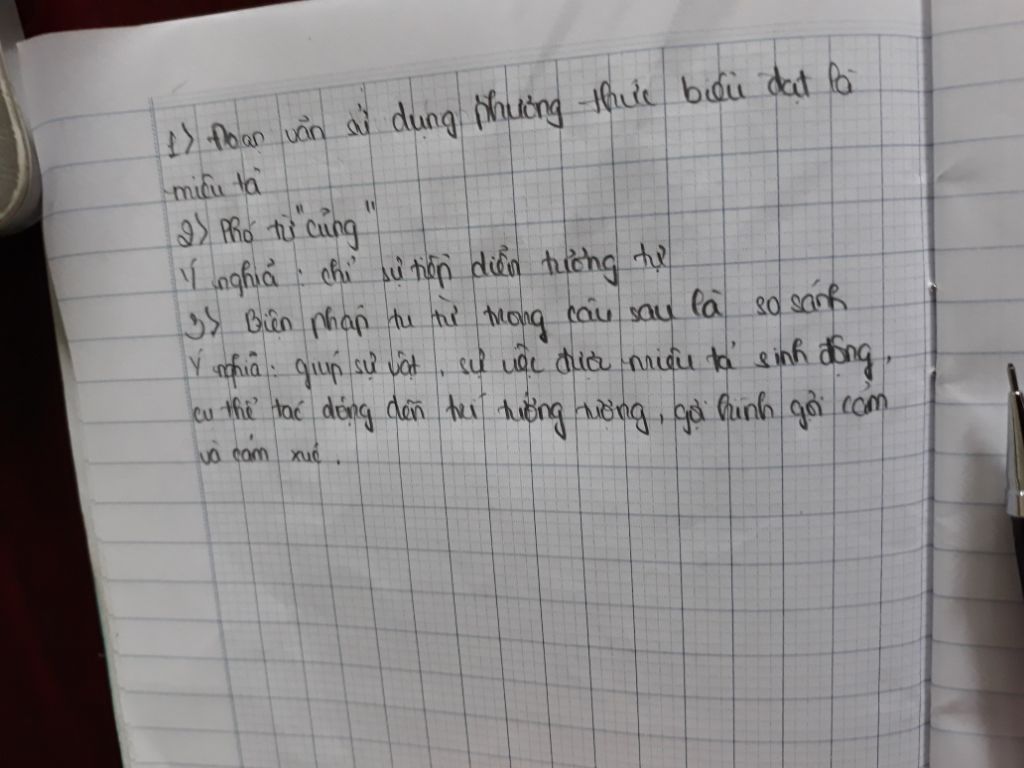 1) Đoạn văn sử dụng phương thức biểu đạt là
miêu tả
2) Phó từ "cũng"
Ý nghĩa : chỉ sự tiếp diễn tương tự
3) Biện pháp tu từ trong câu sau là so sánh
Ý nghĩa : giúp sự vật, sự việc được miêu tả sinh động,
cụ thể tác động đến trí tưởng tượng, gợi hình gợi cảm
và cảm xúc.